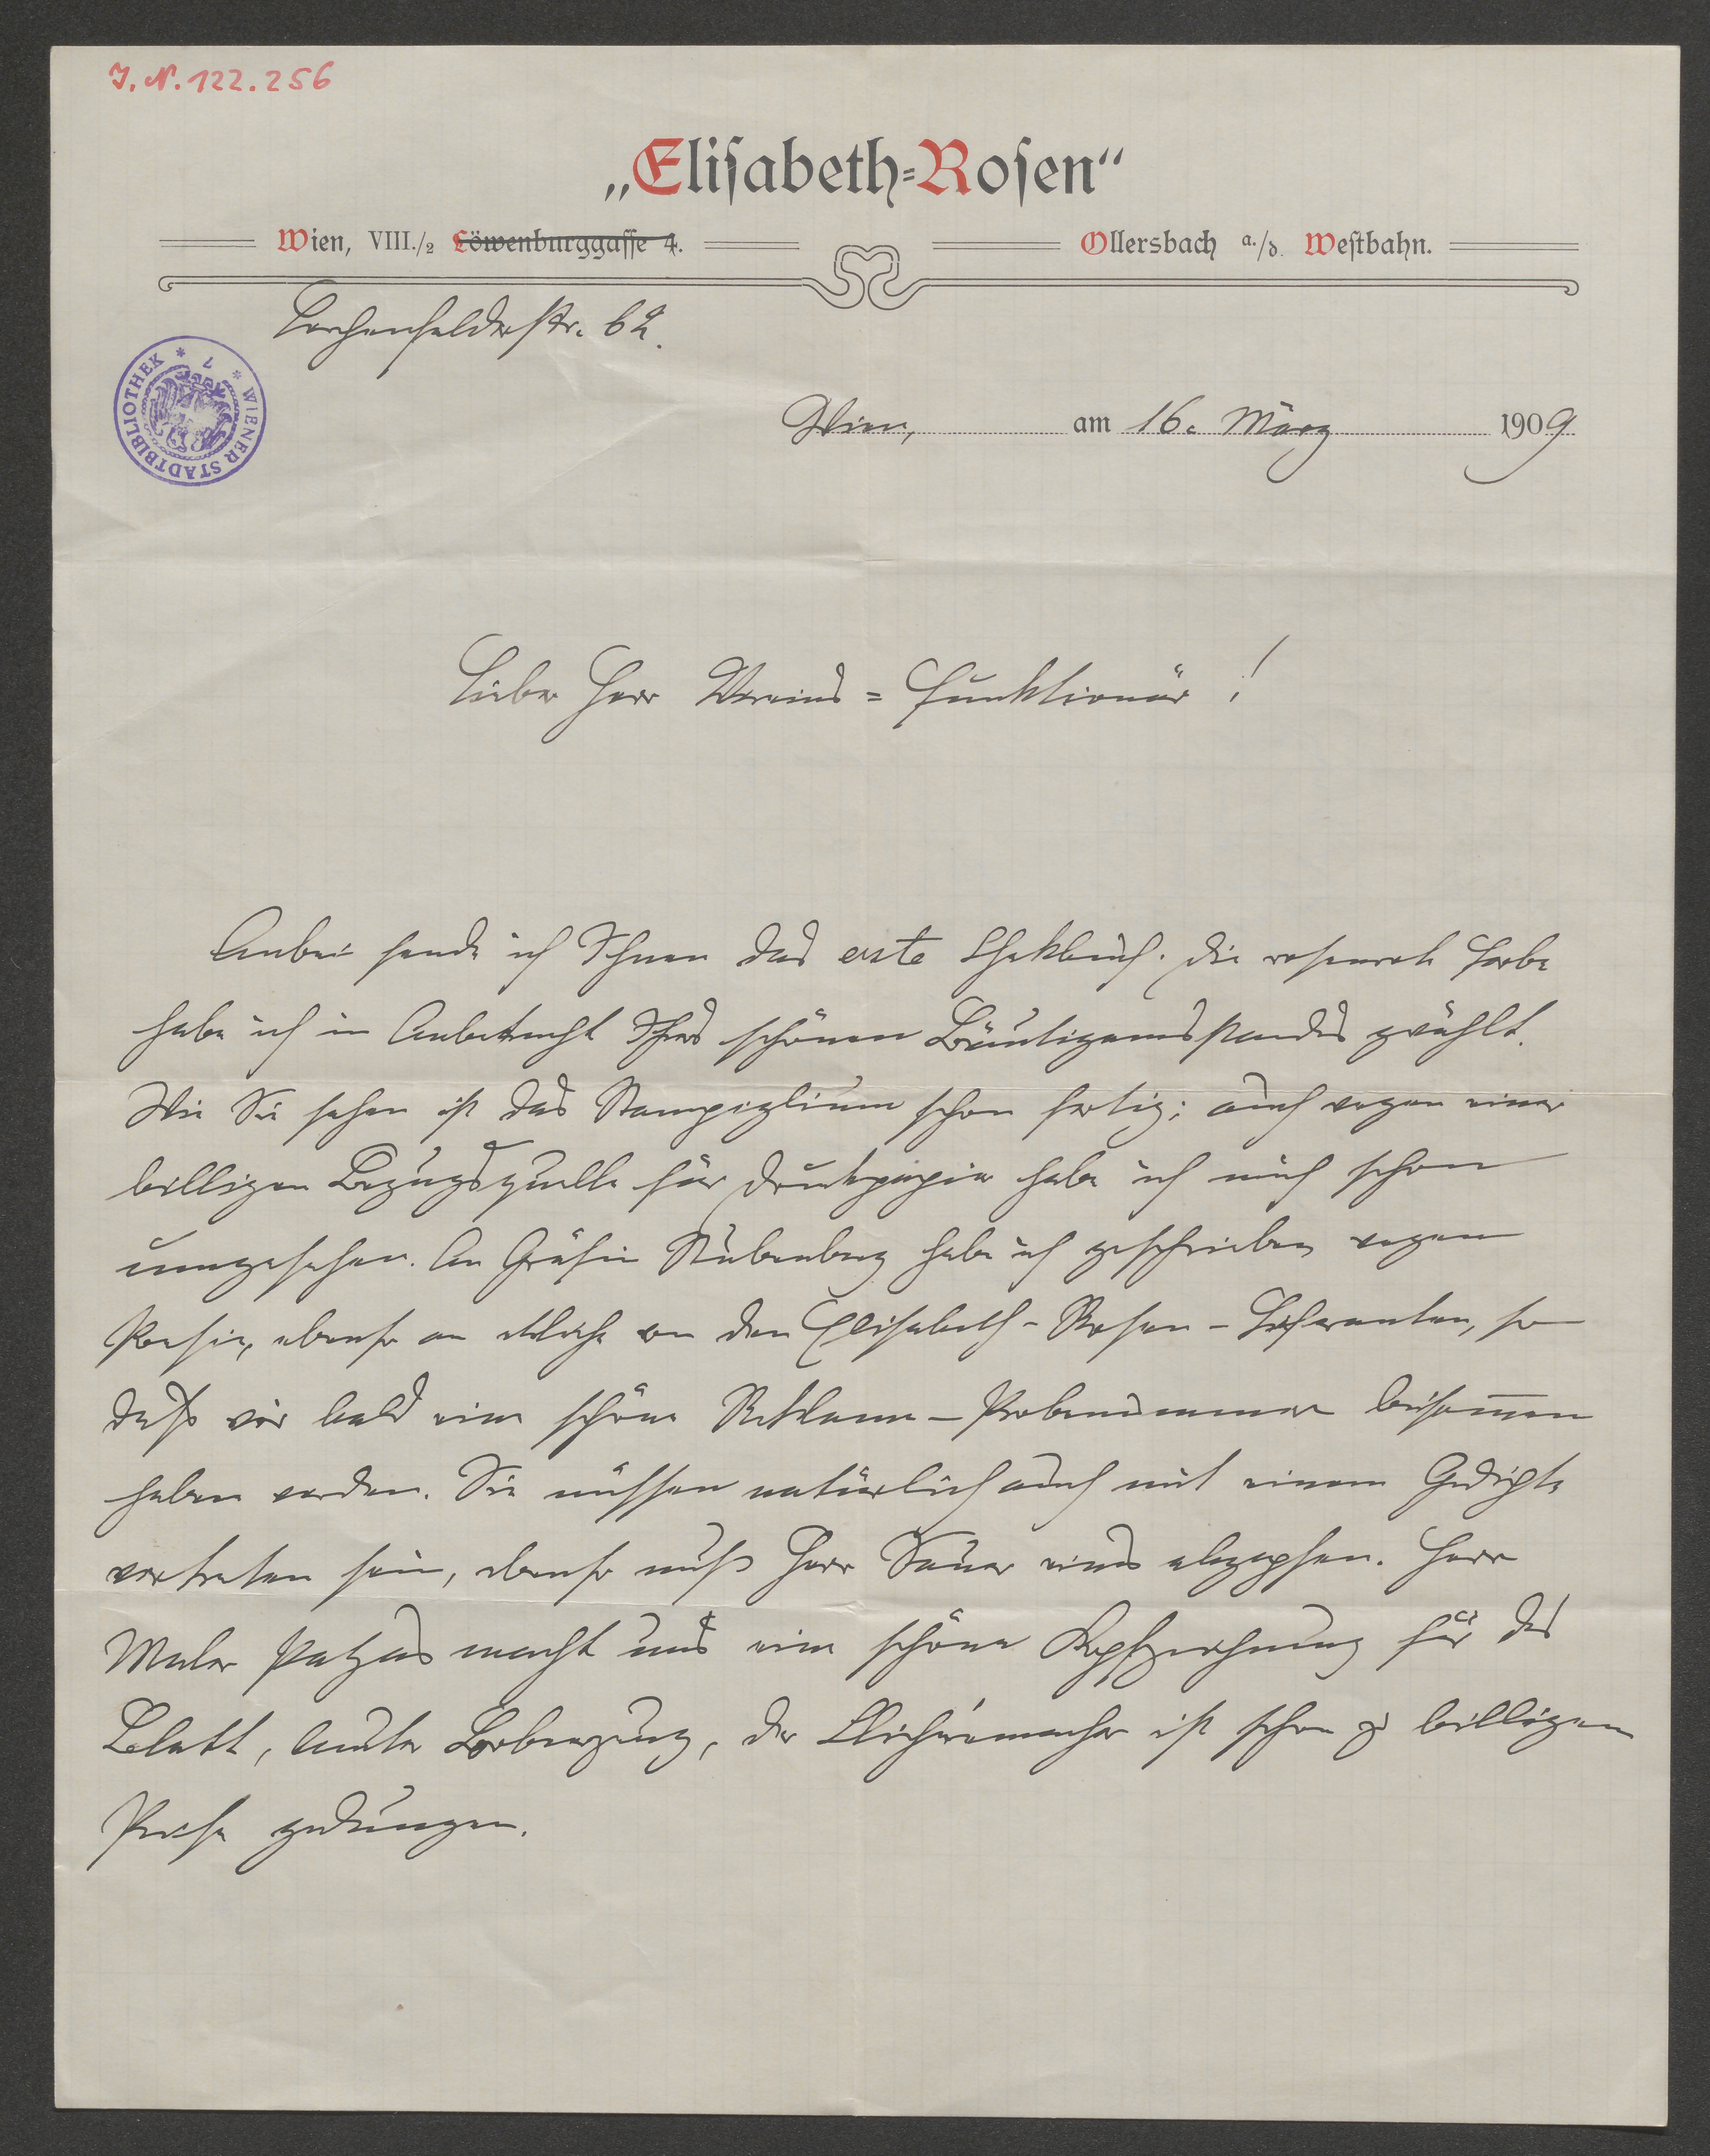 I. N. 122.256
„Eliſabeth=Roſen“
Wien, VIII./2 Löwenburggaſſe 4.
Ollersbach a./d. Weſtbahn.
Lerchenfelderstr. 62.
WIENER STADTBIBLIOTHEK
Wien, am 16. März 1909
Lieber Herr Vereins=Funktionär!
Anbei sende ich Ihnen das erste Chekbuch. Die rosenrote Farbe
habe ich in Anbetracht Ihres schönen Bräutigamsstandes gewählt.
Wie Sie sehen ist das Stampiglium schon fertig; auch wegen einer
billigen Bezugsquelle für Druckpapier habe ich mich schon
umgesehen. An Gräfin Stubenberg habe ich geschrieben wegen
Poesie, ebenso an etliche von den Elisabeth-Rosen-Lieferanten, so
daß wir bald eine schöne Reklame-Probenummer beisam̅en
haben werden. Sie müssen natürlich auch mit einem Gedichte
vertreten sein, ebenso muß Herr Sauer eines abzapfen. Herr
Maler macht uns eine schöne Kopfzeichnung für das
Blatt, der Clichémacher ist schon zu billigem
Preise gedungen.